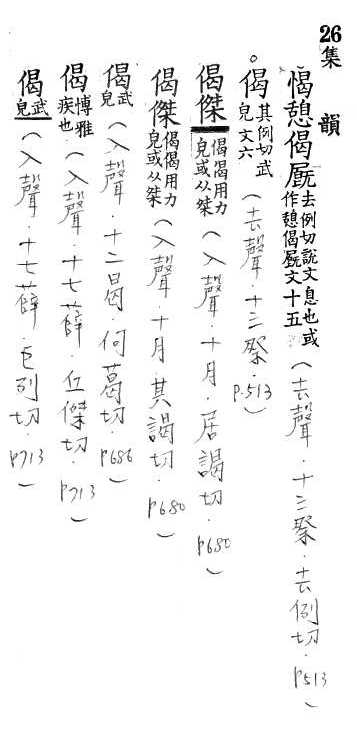 26
集韻
愒憩偈㕊去例切說文息也或作憩偈㕊文十五(去聲.十三祭.去例切.P513)
偈其例切武皃文六(去聲.十三祭.P.513)
偈傑偈偈用力皃或从桀(入聲.十月.居謁切.P680)
偈傑偈偈用力皃或从桀(入聲.十月.其謁切.P680)
偈武皃(入聲.十二曷.何葛切.P686)
偈博雅疾也(入聲.十七薛.丘傑切.P713)
偈武皃(入聲.十七薛.巨列切.P713)